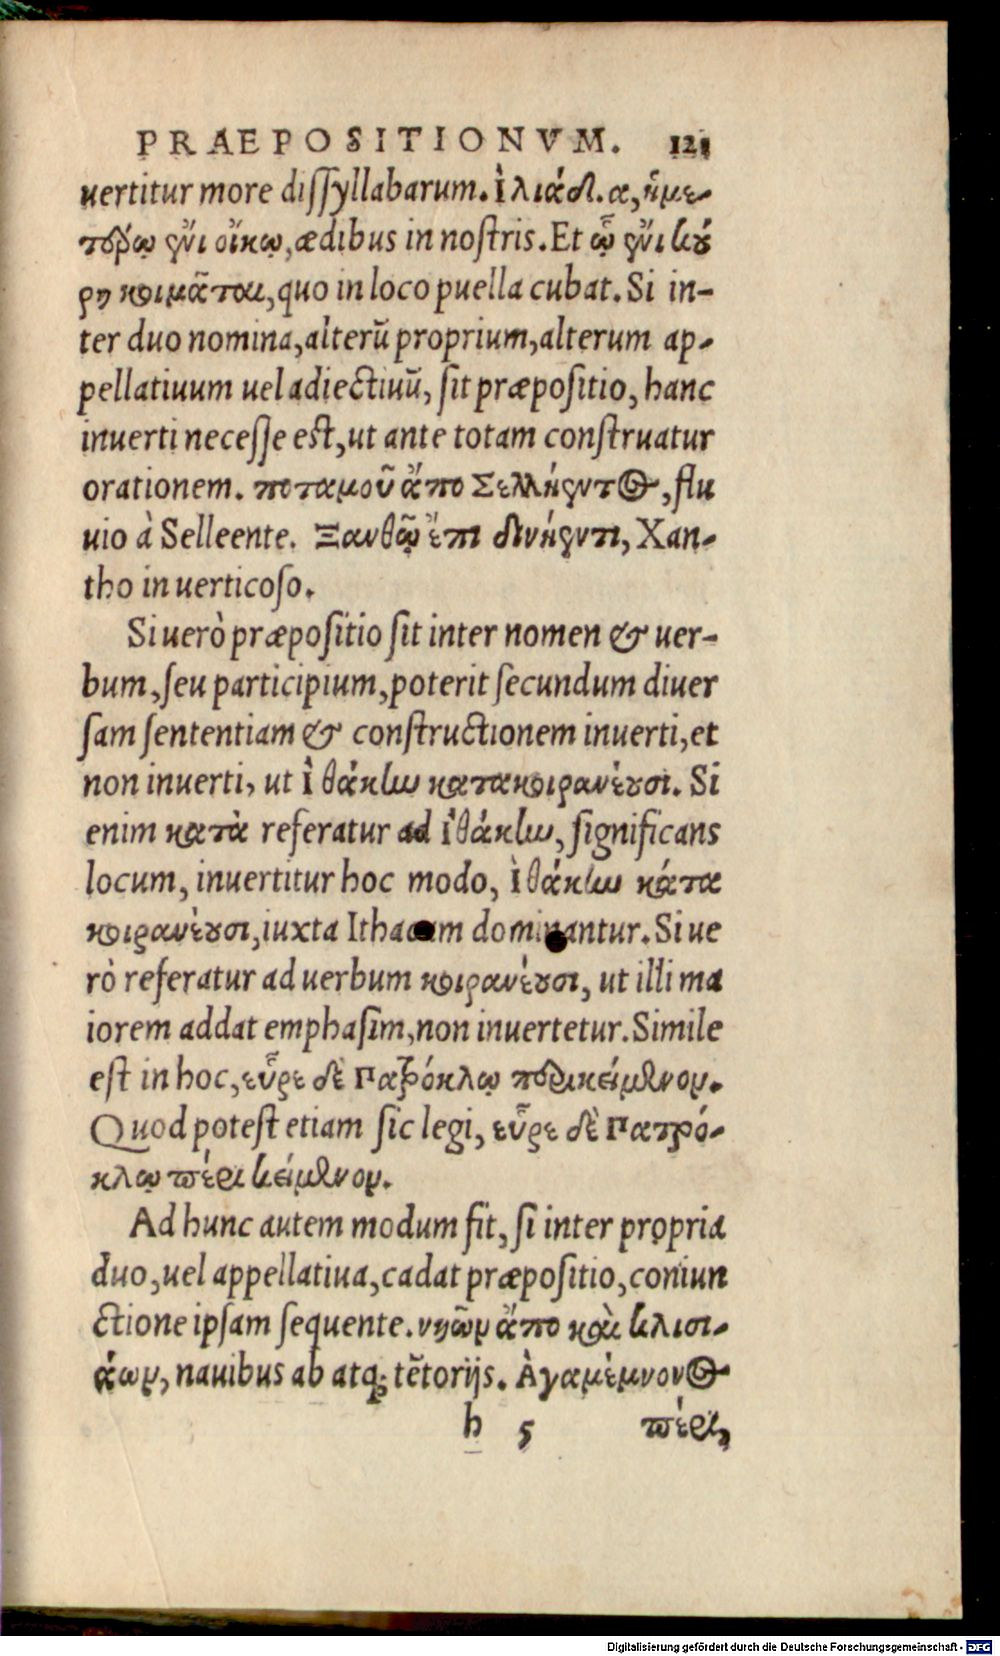 PRAEPOSITIONVM. 121
uertitur more dissyllabarum. ἰλιάδι. α, ἡμε-
τέρῳ ἐνὶ οἴκῳ, ædibus in nostris. Et ᾧ ἔνι κού
ρη κοιμᾶται, quo in loco puella cubat. Si in-
ter duo nomina, alterũ proprium, alterum ap-
pellatiuum uel adiectiuũ, sit præpositio, hanc
inuerti necesse est, ut ante totam construatur
orationem. ποταμοῦ ἄπο Σελλήεντος, flu
uio à Selleente. Ξανθῷ ἔπι δινήεντι, Xan-
tho in uerticoso.
Si uerò præpositio sit inter nomen & uer-
bum, seu participium, poterit secundum diuer
sam sententiam & constructionem inuerti, et
non inuerti, ut ἰθάκην κατακοιρανέουσι. Si
enim κατὰ referatur ad ἰθάκην, significans
locum, inuertitur hoc modo, ἰθάκην κάτα
κοιρανέουσι, iuxta Ithacam dominantur. Si ue
rò referatur ad uerbum κοιρανέουσι, ut illi ma
iorem addat emphasim, non inuertetur. Simile
est in hoc, εὗρε δὲ Πατρόκλῳ περικείμενον.
Quod potest etiam sic legi, εὗρε δὲ Πατρό-
κλῳ πέρι κείμενον.
Ad hunc autem modum fit, si inter propria
duo, uel appellatiua, cadat præpositio, coniun
ctione ipsam sequente. νηῶν ἄπο καὶ κλισι-
άων, nauibus ab atq; tẽtorijs. Ἀγαμέμνονος
h 5 πέρι,
Digitalisierung gefördert durch die Deutsche Forschungsgemeinschaft - DFG